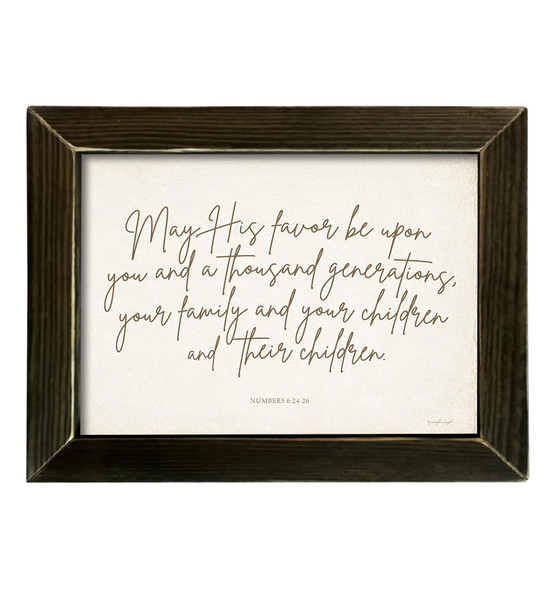 May His favor be upon
you and a thousand generations,
your family and your children
and their children.
NUMBERS 6:24-26